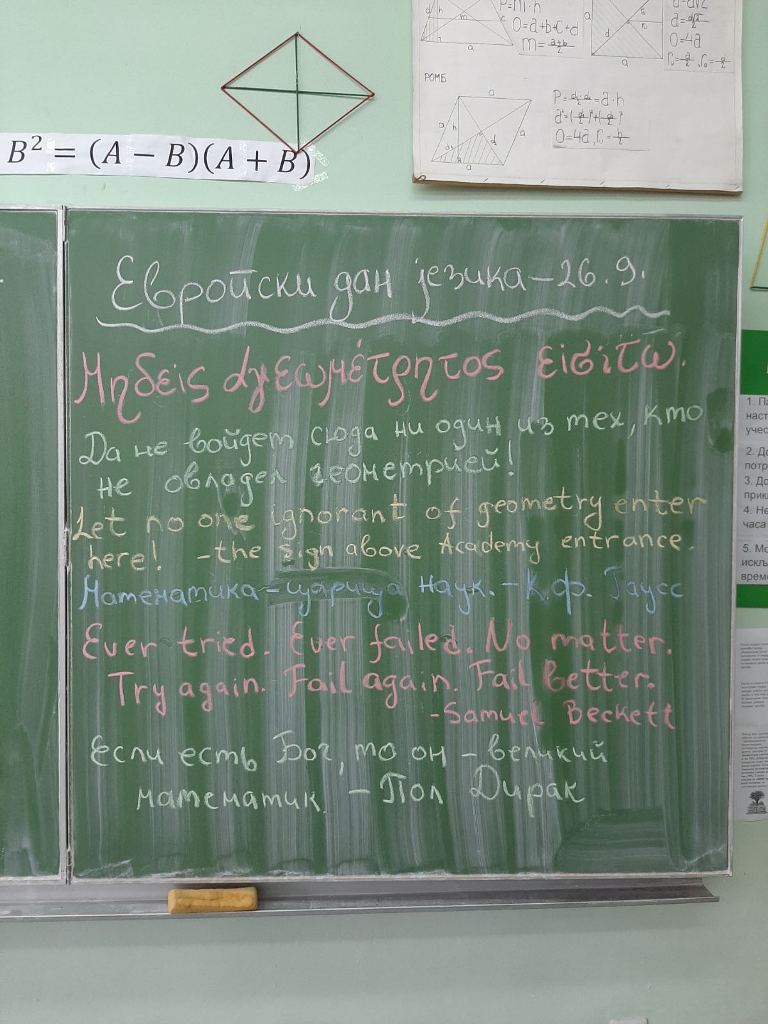 P=m·h
O=a+b+c+d
m=\frac{a+b}{2}
O=4a
РОМБ
O=4a
B² = (A − B)(A + B)
Европски дан језика – 26.9.
Μηδείς ἀγεωμέτρητος εἰσίτω.
Да не войдет сюда ни один из тех, кто
не овладел геометрией!
Let no one ignorant of geometry enter
here! - the sign above Academy entrance.
Математика – царица наук. – К.Ф. Гаусс
Ever tried. Ever failed. No matter.
Try again. Fail again. Fail Better.
- Samuel Beckett
Если есть Бог, то он – великий
математик. – Пол Дирак